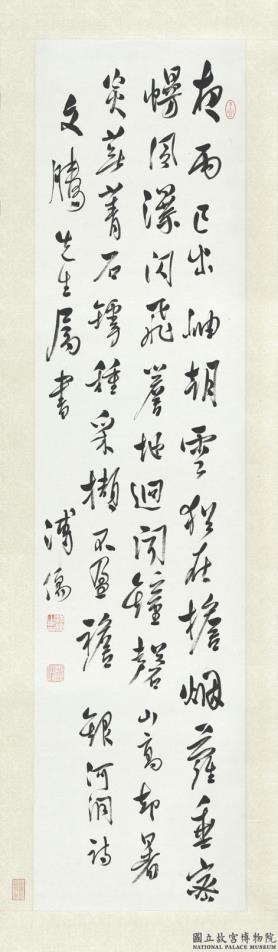 夜雨已出岫朝雲猶在檐烟蘿垂密
幔風瀑閃飛地迥聞鐘磬山高却暑
炎蕪菁石罅種采擷不盈襜 銀河洞詩
文騰先生屬書 溥儒
國立故宮博物院
NATIONAL PALACE MUSEUM